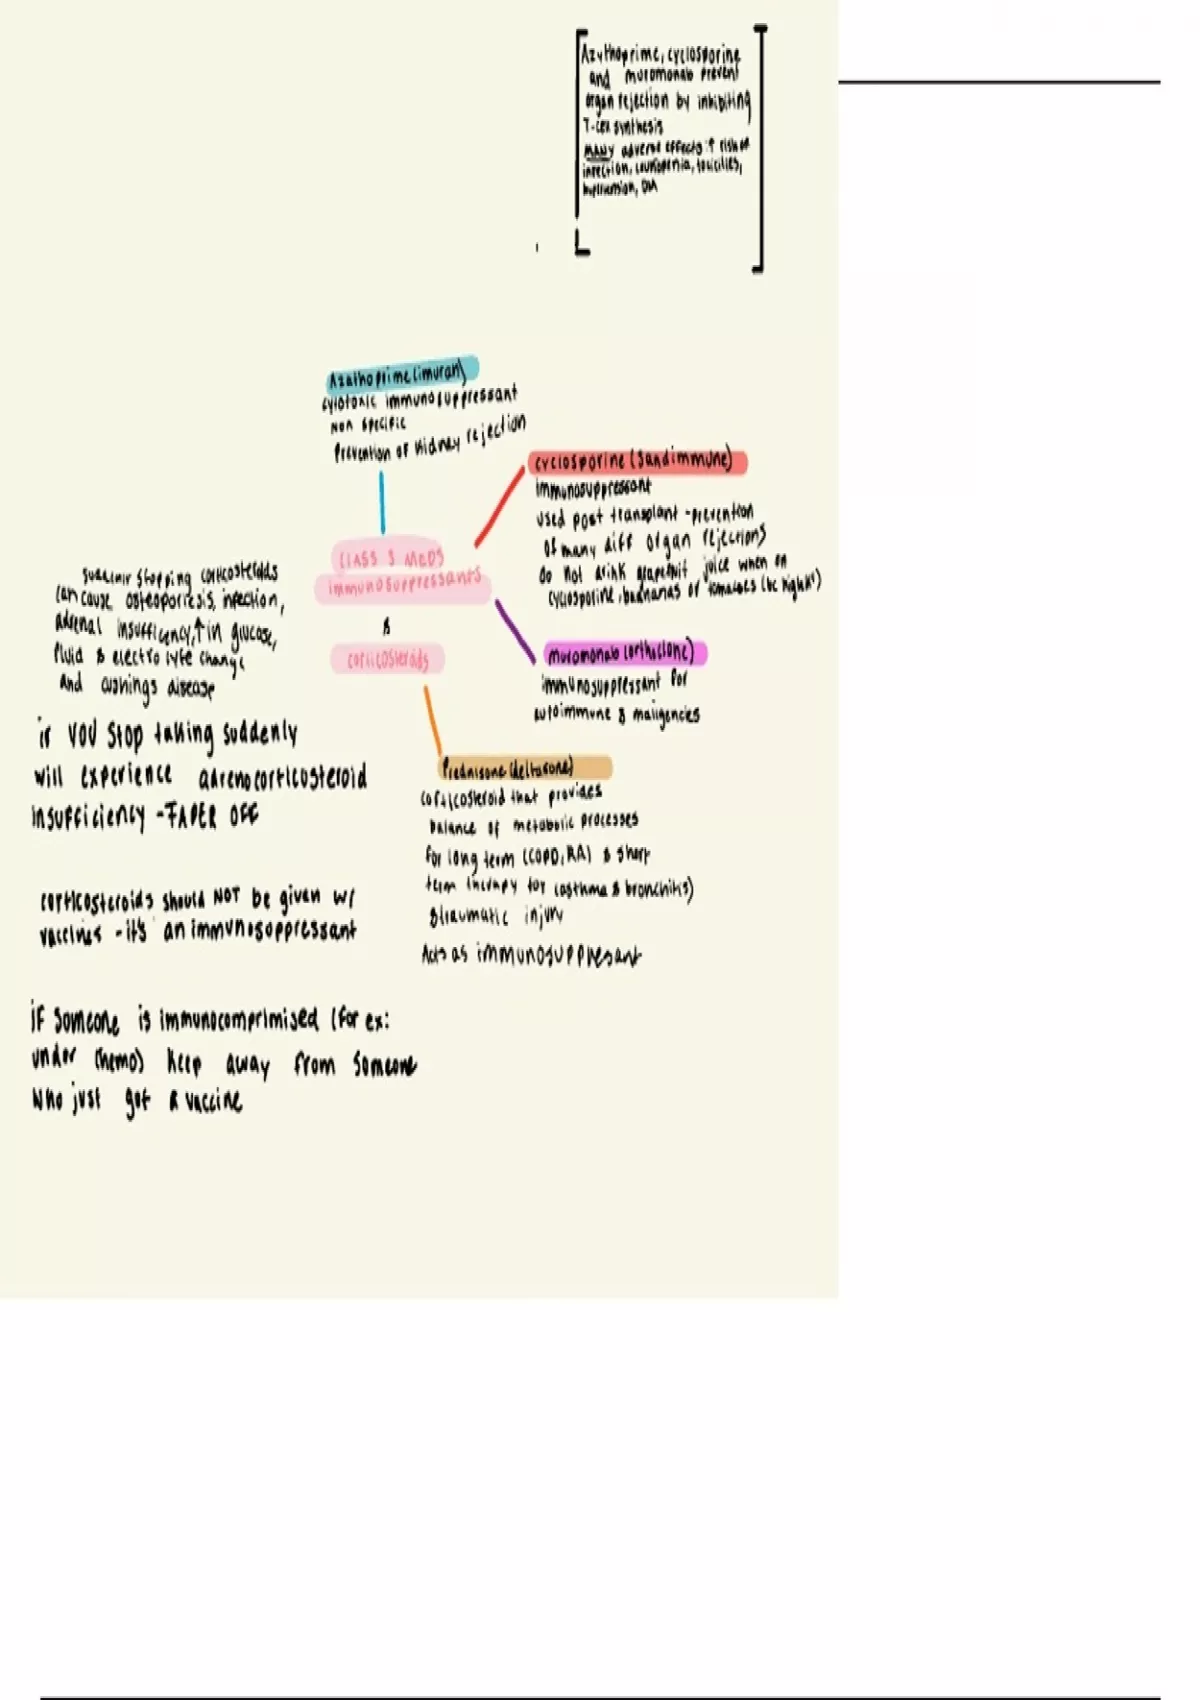 Azythoprime, cyclosporine
and muromonab prevent
organ rejection by inhibiting
T-cell synthesis
MANY adverse effects ↑ risk of
infection, toxicities,
DM
Azathoprime (imuran)
cytotoxic immunosuppressant
Non specific
Prevention of kidney rejection
cyclosporine (sandimmune)
immunosuppressant
used post transplant - prevention
of many diff organ rejections
do not drink grapefruit juice when on
cyclosporine, or (bc high K⁺)
CLASS 3 MEDS
immunosuppressants
&
corticosteroids
stopping corticosteroids
can cause infection,
adrenal insufficiency, ↑ in glucose,
fluid & electrolyte change
and cushings disease
muromonab (orthoclone)
immunosuppressant for
autoimmune & maligencies
if YOU stop taking suddenly
will experience adrenocorticosteroid
insufficiency - TAPER OFF
Prednisone (deltasone)
corticosteroid that provides
balance of metabolic processes
for long term (COPD, RA) & short
term therapy for (asthma & bronchitis)
& traumatic injury
Acts as immunosuppresant
corticosteroids should NOT be given w/
vaccines - it's an immunosoppressant
if someone is immunocomprimised (for ex:
under chemo) keep away from someone
who just got a vaccine